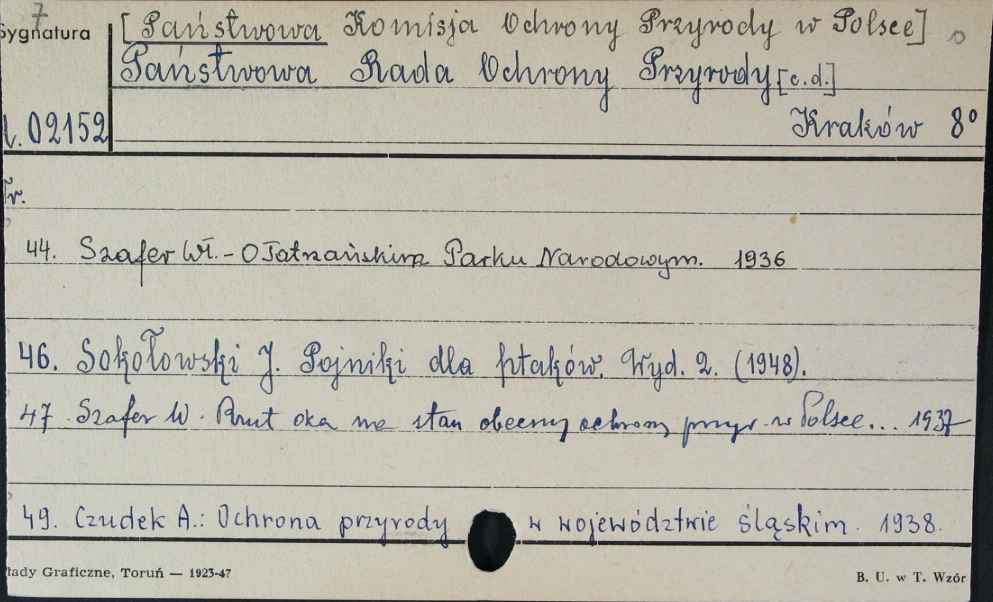 7
Sygnatura
[Państwowa Komisja Ochrony Przyrody w Polsce]
Państwowa Rada Ochrony Przyrody [c.d.]
Kraków 8°
02152
Nr.
44. Szafer Wł. - O Tatrzańskim Parku Narodowym. 1936
46. Sokołowski J. Pojniki dla ptaków. Wyd. 2. (1948).
47. Szafer W. Rzut oka na stan obecny ochrony przyr. w Polsce... 1937
49. Czudek A.: Ochrona przyrody w województwie śląskim. 1938.
łady Graficzne, Toruń — 1923-47
B. U. w T. Wzór